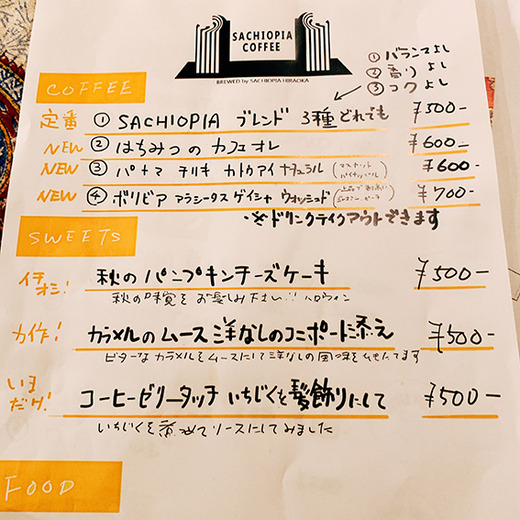 SACHIOPIA
COFFEE
BREWED by SACHIOPIA HIRAOKA
① バランスよし
② 香りよし
③ コクよし
COFFEE
定番 ① SACHIOPIA ブレンド 3種どれでも ¥500-
NEW ② はちみつのカフェオレ ¥600-
NEW ③ パナマ チリキ カトゥアイ ナチュラル ¥600-
NEW ④ ボリビア アラシータス ゲイシャ ウォッシュド ¥700-
・※ドリンクテイクアウトできます
SWEETS
イチオシ! 秋のパンプキンチーズケーキ ¥500-
秋の味覚をお楽しみ下さい!! ハロウィン
力作! カラメルのムース 洋なしのコンポートに添え ¥500-
ビターなカラメルをムースにして洋なしの風味を
いまだけ! コーヒーゼリータッチ いちじくを髪飾りにして ¥500-
いちじくを煮つめてソースにしてみました
FOOD